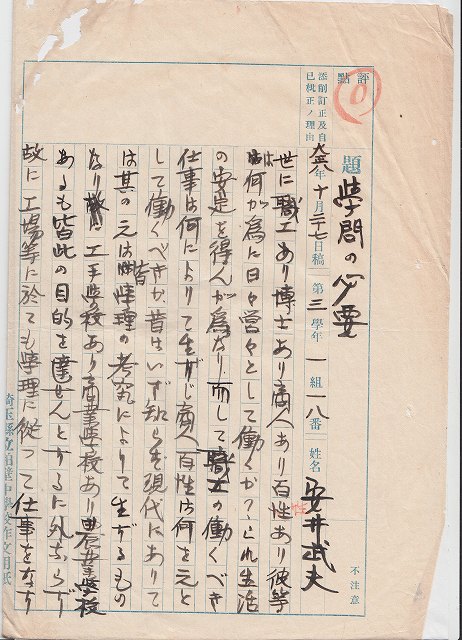 評點
添削訂正及自
已批正ノ理由
題 學問の必要
大八年十月二十七日稿 第三學年一組一八番 姓名 安井武夫
不注意
世に職工あり博士あり商人あり百性あり彼等
は何が為に日々營々として働くか？これ生活
の安定を得んが為なり而して職工の働くべき
仕事は何によりて生ずじ商人百性は何を元と
して働くべきか昔はいざ知らず現代にありて
は其の元は皆學理の考究によりて生ずるもの
なり故に工手學校あり商業學校あり農業學校
あるも皆此の目的を達せんとするに外ならず
故に工場等に於ても學理に從つて仕事をなす
埼玉縣立粕壁中學校作文用紙